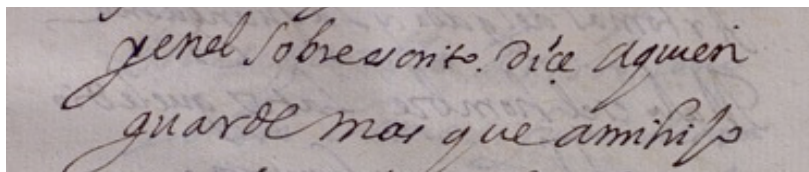 yenel sobre escrito. Dice aquien
guarde mas que amihijo